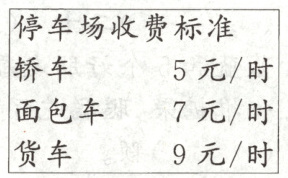 停车场收费标准
轿车 5 元/时
面包车 7 元/时
货车 9 元/时